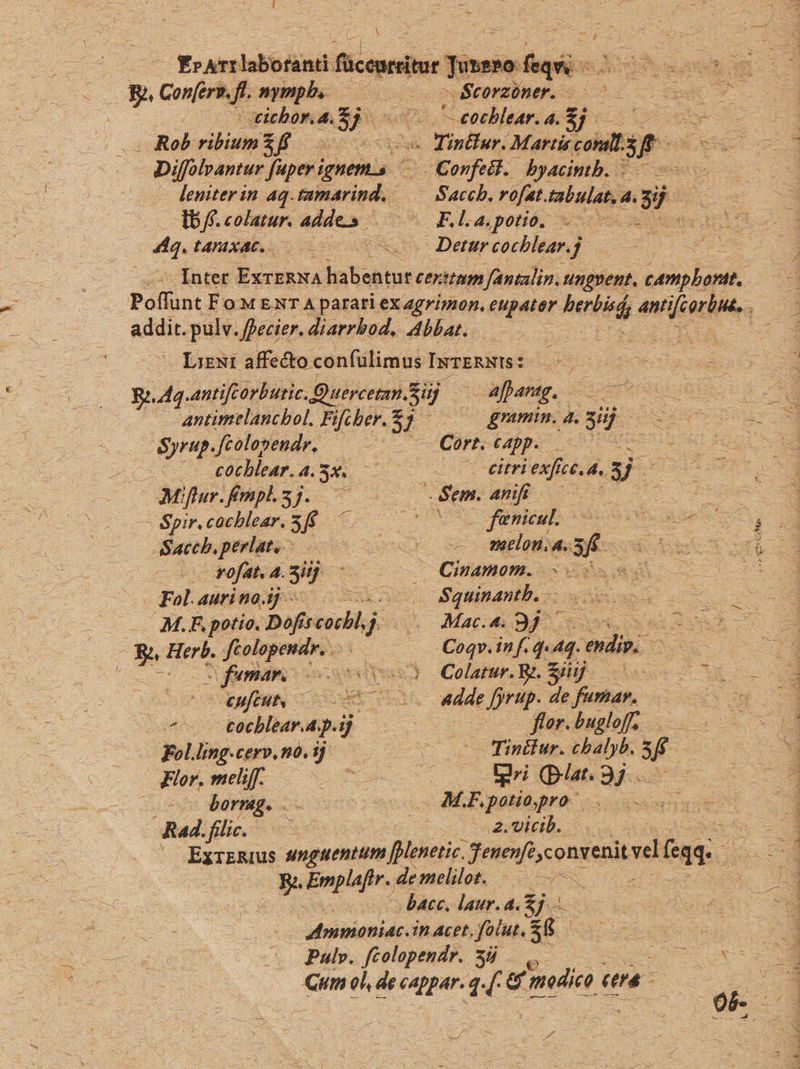 EPATI laboranti ſuccurritur JULEPO ſeqv.
℞. Conſerv. fl. nymph.
cichor. a. ℥j
Rob ribium ℥ß
Diſſolvantur ſuper ignem
leniter in aq. tamarind.
℔ ß. colatur. adde
Aq. taraxac.
Scorzoner.
cochlear. a. ℥j
Tinctur. Martis corall. ʒß
Confect. hyacinth.
Sacch. roſat. tabulat. a. ʒij
F. l. a. potio.
Detur cochlear. j
Inter EXTERNA habentur ceratum ſantalin. ungvent. camphorat.
Poſſunt FOMENTA parari ex agrimon. eupator herbisq; antiſcorbut.
addit. pulv. ſpecier. diarrhod. Abbat.
LIENI affecto conſulimus INTERNIS:
℞. Aq. antiſcorbutic. Quercetan. ℥iij
antimelanchol. Fiſcher. ℥j
Syrup. ſcolopendr.
cochlear. a. ʒx.
Miſtur. ſimpl. ʒj.
Spir. cochlear. ʒß
Sacch. perlat.
roſat. a. ʒiij
Fol. auri no. ij
M. F. potio. Doſis cochl. j
℞. Herb. ſcolopendr.
fumar.
cuſcut.
cochlear. a. p. ij
Fol. ling. cerv. no. ij
Flor. meliſſ.
borrag.
Rad. filic.
aſparag.
gramin. a. ʒiij
Cort. capp.
citri exſicc. a. ʒj
Sem. aniſi
fœnicul.
melon. a. ʒß
Cinamom.
Squinanth.
Mac. a. ℈j
Coqv. in ſ. q. aq. endiv.
Colatur. ℞. ℥iiij
adde ſyrup. de fumar.
flor. bugloſſ.
Tinctur. chalyb. ʒß
lat. ℈j
M. F. potio, pro
2. vicib.
EXTERIUS unguentum ſplenetic. Jenenſe, convenit vel ſeqq.
℞. Emplaſtr. de melilot.
bacc. laur. a. ℥j
Ammoniac. in acet. ſolut. ℥ß
Pulv. ſcolopendr. ʒij
Cum ol. de cappar. q. ſ. & modico ceræ
Ob-